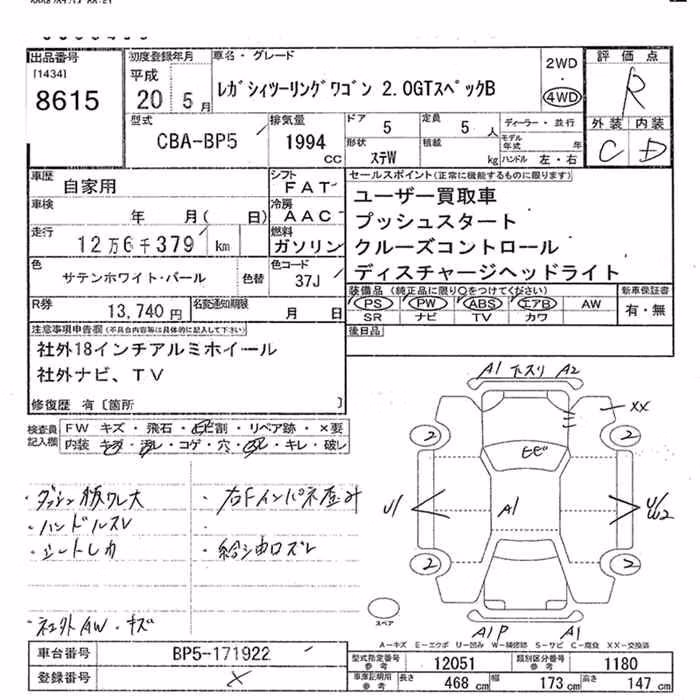 出品番号
[1434]
8615
初度登録年月
平成
20 5月
車名・グレード
レガシィツーリングワゴン 2.0GTスペックB
2WD
・
4WD
評価点
R
外装 内装
C D
型式
CBA-BP5
排気量
1994
CC
ドア 5
形状
ステW
定員 5人
積載 kg
ディーラー・並行
モデル年式 年
ハンドル 左・右
車歴
自家用
シフト
FAT
車検
年 月( 日)
冷房
AAC
走行
12万6千379 km
燃料
ガソリン
色
サテンホワイト・パール
色替
色コード
37J
R券
13,740円
名変通知期限
月 日
セールスポイント(正常に機能するものに限ります)
ユーザー買取車
プッシュスタート
クルーズコントロール
ディスチャージヘッドライト
装備品(純正品に限り○をつけてください)
PS PW ABS エアB AW
SR ナビ TV カワ
新車保証書
有・無
後日品
注意事項申告欄(不具合内容等は具体的に記入して下さい)
社外18インチアルミホイール
社外ナビ、TV
修復歴 有〔箇所 〕
検査員
記入欄
FW キズ・飛石・ヒビ割・リペア跡・×要
内装 キズ・汚レ・コゲ・穴・スレ・キレ・破レ
・ハンドルスレ
・給油口ズレ
・社外AW・キズ
A1 下スリ A2
XX
2
2
ヒビ
A1
U1
U/W2
2
2
スペア
A1P A1
A-キズ E-エクボ U-凹み W-補修跡 S-サビ C-腐食 XX-交換済
車台番号
BP5-171922
登録番号
型式指定番号
参考
12051
類別区分番号
参考
1180
車庫証明用
参考
長さ 468cm
幅 173cm
高さ 147cm